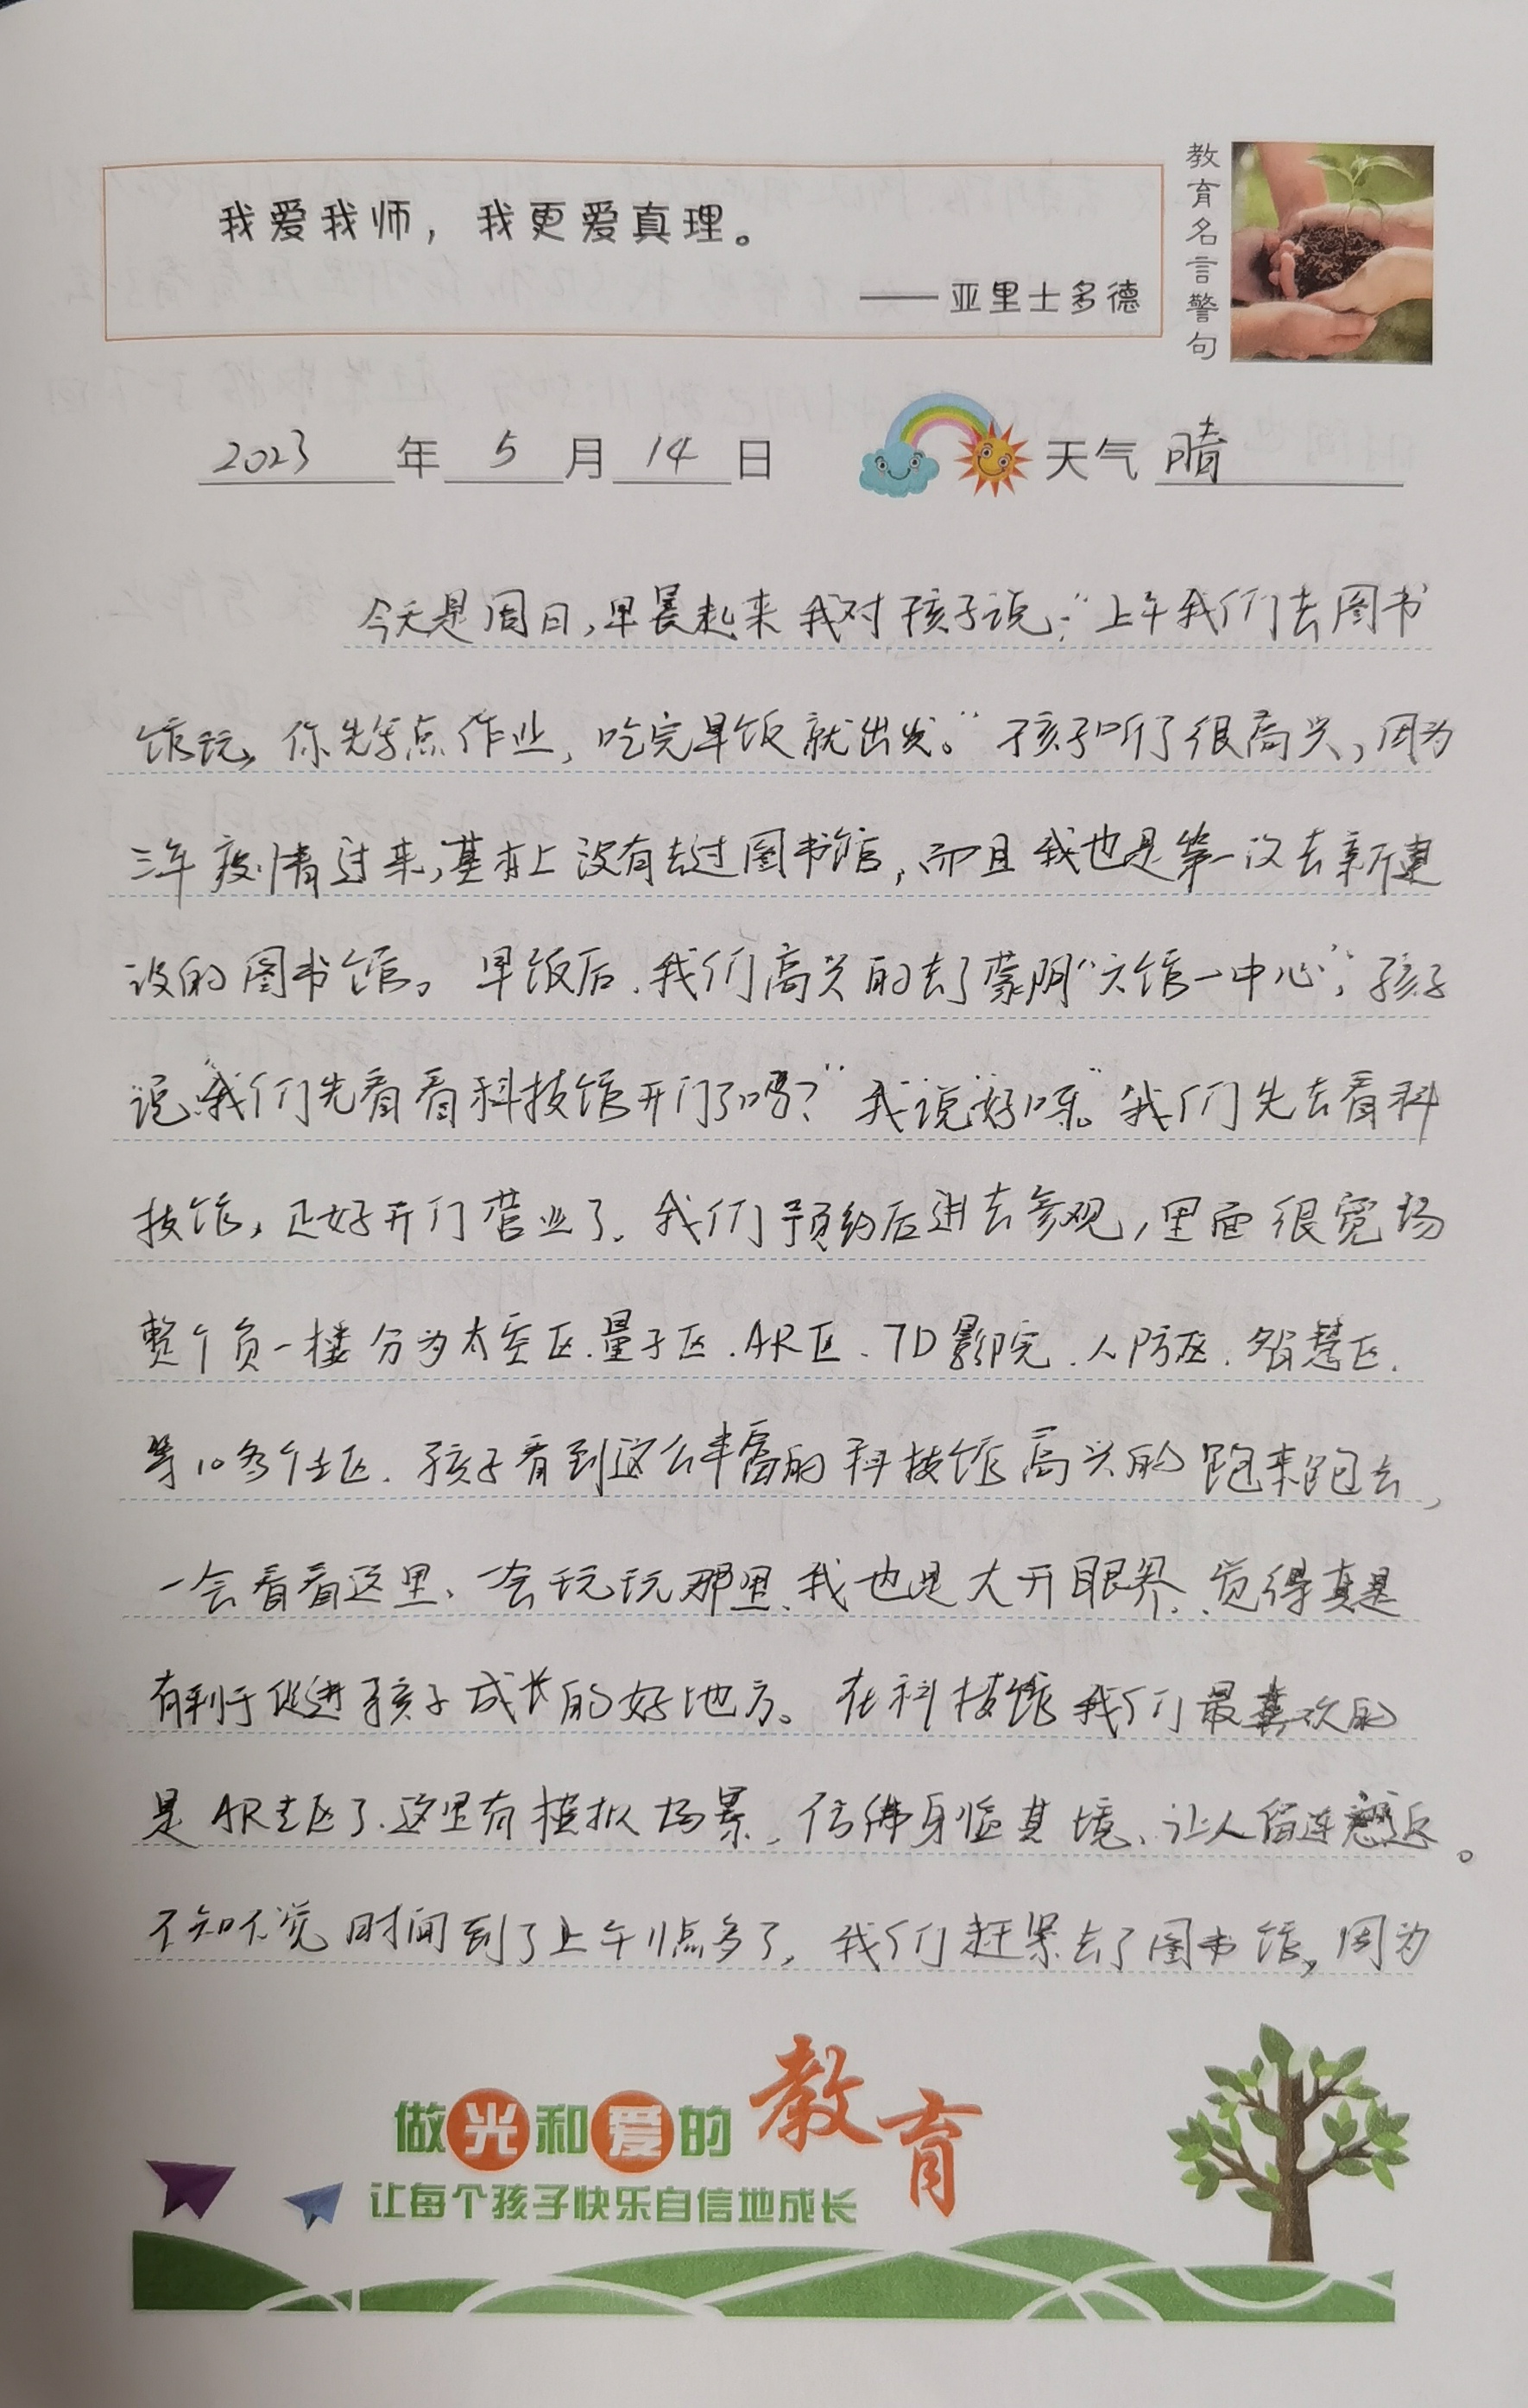 我爱我师，我更爱真理。
——亚里士多德
教育名言警句
2023年5月14日 天气 晴
今天是周日，早晨起来我对孩子说：“上午我们去图书
馆玩，你先写点作业，吃完早饭就出发。”孩子听了很高兴，因为
三年疫情过来，基本上没有去过图书馆，而且我也是第一次去新建
设的图书馆。早饭后，我们高兴的去了蒙阴“六馆一中心”，孩子
说“我们先看看科技馆开门了吗？”我说“好哇。”我们先去看科
技馆，正好开门营业了。我们预约后进去参观，里面很宽场
整个负一楼分为太空区、量子区、AR区、7D影院、人防区、智慧区、
等10多个区、孩子看到这么丰富的科技馆高兴的跑来跑去，
一会看看这里、一会玩玩那里、我也是大开眼界、觉得真是
有利于促进孩子成长的好地方。在科技馆我们最喜欢的
是AR区了、这里有模拟场景，仿佛身临其境、让人留连忘返。
不知不觉时间到了上午11点多了，我们赶紧去了图书馆，因为
做光和爱的教育
让每个孩子快乐自信地成长